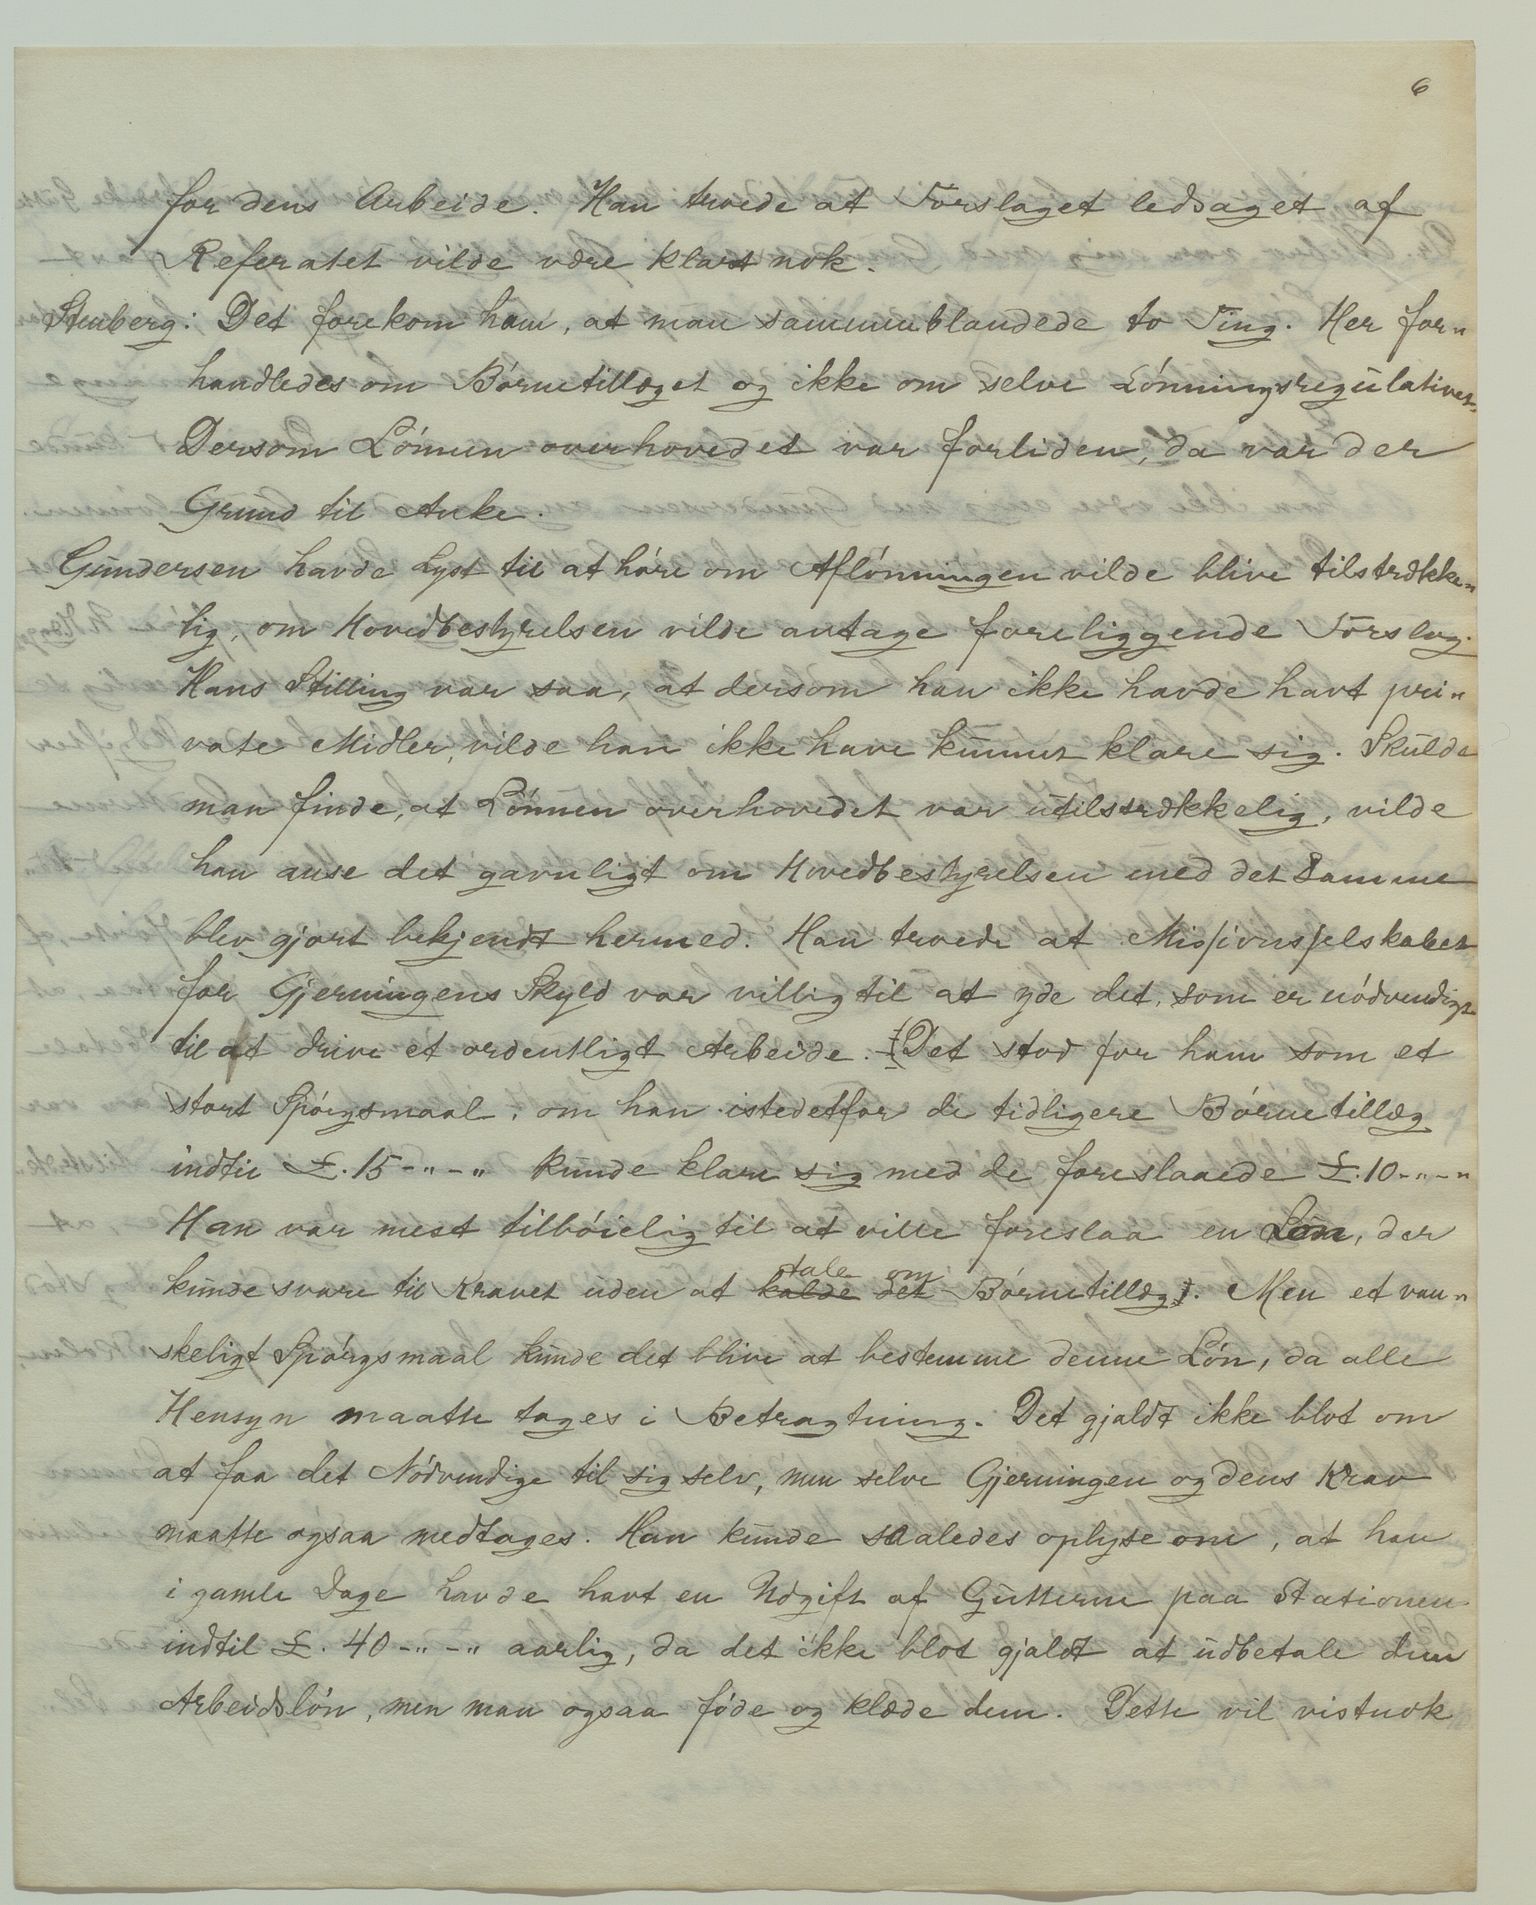 6
for dens Arbeide. Han troede at Forslaget ledsaget af
Referatet vilde være klart nok.
Stenberg: Det forekom ham, at man sammenblandede to Ting. Her for-
handledes om Børnetillæget og ikke om selve Lønningsregulativet.
Dersom Lønnen overhovedet var forliden, da var der
Grund til Anke.
Gundersen havde Lyst til at høre om Aflønningen vilde blive tilstrække-
lig, om Hovedbestyrelsen vilde antage foreliggende Forslag.
Hans Stilling var saa, at dersom han ikke havde havt pri-
vate Midler, vilde han ikke have kunnet klare sig. Skulde
man finde, at Lønnen overhovedet var utilstrækkelig, vilde
han anse det gavnligt om Hovedbestyrelsen med det Samme
blev gjort bekjendt hermed. Han troede at Missionsselskabet
for Gjerningens Skyld var villig til at yde det, som er nødvendigt
til at drive et ordentligt Arbeide. (Det stod for ham som et
stort Spørgsmaal, om han istedetfor de tidligere Børnetillæg
indtil £. 15-"-" kunde klare sig med de foreslaaede £. 10-"-"
Han var mest tilbøielig til at ville foreslaa en Løn, der
kunde svare til Kravet uden at kalde det tale om Børnetillæg). Men et van-
skeligt Spørgsmaal kunde det blive at bestemme denne Løn, da alle
Hensyn maatte tages i Betragtning. Det gjaldt ikke blot om
at faa det Nødvendige til sig selv, men selve Gjerningen og dens Krav
maatte ogsaa medtages. Han kunde saaledes oplyse om, at han
i gamle Dage havde havt en Udgift af Gutterne paa Stationen
indtil £. 40-"-" aarlig, da det ikke blot gjaldt at udbetale dem
Arbeidsløn, men man ogsaa føde og klæde dem. Dette vil vistnok